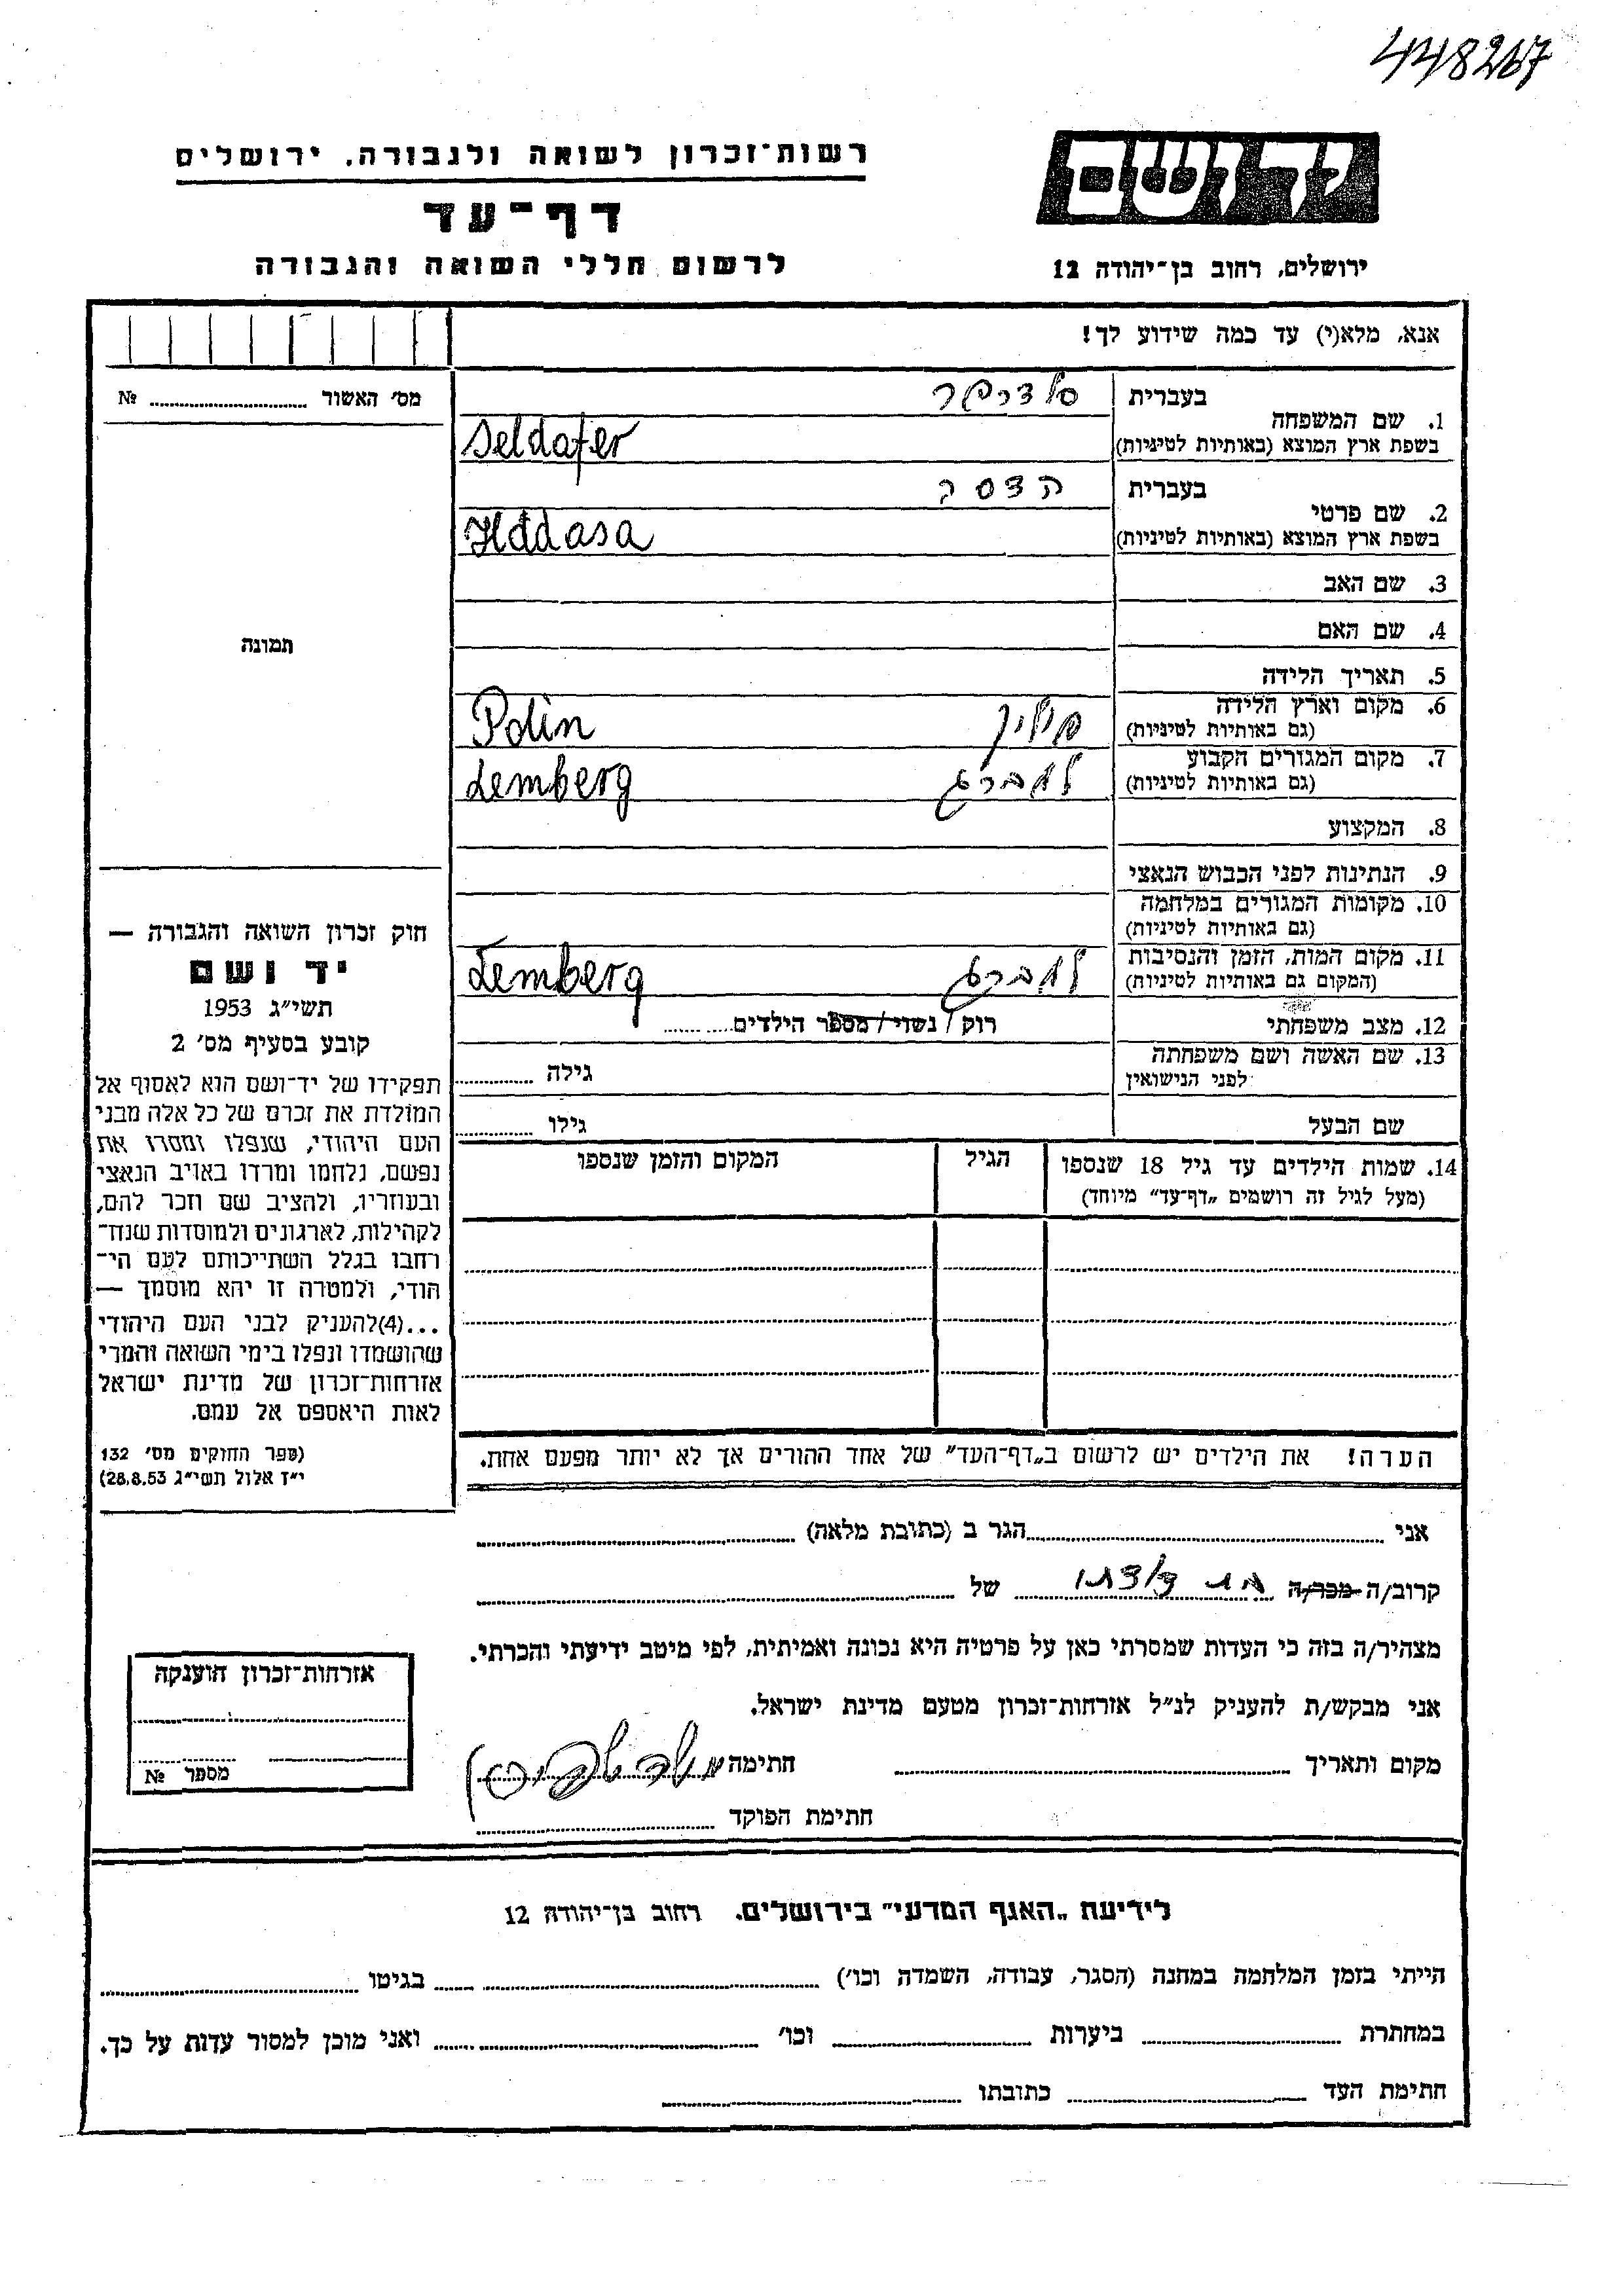 448267
ידושם
רשות־זכרון לשואה ולגבורה, ירושלים
דף־עד
לרשום חללי השואה והגבורה
ירושלים, רחוב בן־יהודה 12
אנא, מלא(י) עד כמה שידוע לך!
מס׳ האשור ........ №
תמונה
1. שם המשפחה
בעברית
סלדפר
בשפת ארץ המוצא (באותיות לטיניות)
Seldafer
2. שם פרטי
בעברית
הדסה
בשפת ארץ המוצא (באותיות לטיניות)
Hddasa
3. שם האב
4. שם האם
5. תאריך הלידה
6. מקום וארץ הלידה
(גם באותיות לטיניות)
פולין Polin
7. מקום המגורים הקבוע
(גם באותיות לטיניות)
למברג Lemberg
8. המקצוע
9. הנתינות לפני הכבוש הנאצי
10. מקומות המגורים במלחמה
(גם באותיות לטיניות)
11. מקום המות, הזמן והנסיבות
(המקום גם באותיות לטיניות)
למברג Lemberg
12. מצב משפחתי
רוק / נשוי / מספר הילדים ........
13. שם האשה ושם משפחתה
לפני הנישואין
גילה ........
שם הבעל
גילו ........
14. שמות הילדים עד גיל 18 שנספו
(מעל לגיל זה רושמים „דף־עד” מיוחד)
הגיל
המקום והזמן שנספו
הערה! את הילדים יש לרשום ב„דף־העד” של אחד ההורים אך לא יותר מפעם אחת.
חוק זכרון השואה והגבורה —
יד ושם
תשי״ג 1953
קובע בסעיף מס׳ 2
תפקידו של יד־ושם הוא לאסוף אל
המולדת את זכרם של כל אלה מבני
העם היהודי, שנפלו ומסרו את
נפשם, נלחמו ומרדו באויב הנאצי
ובעוזריו, ולהציב שם וזכר להם,
לקהילות, לארגונים ולמוסדות שנח־
רחבו בגלל השתייכותם לעם הי־
הודי, ולמטרה זו יהא מוסמך —
...(4)להעניק לבני העם היהודי
שהושמדו ונפלו בימי השואה והמרי
אזרחות־זכרון של מדינת ישראל
לאות היאספם אל עמם.
(ספר החוקים מס׳ 132
י״ז אלול תשי״ג 28.8.53)
אני ........ הגר ב (כתובת מלאה) ........
קרוב/ה מכר/ה ........ של ........
מצהיר/ה בזה כי העדות שמסרתי כאן על פרטיה היא נכונה ואמיתית, לפי מיטב ידיעתי והכרתי.
אני מבקש/ת להעניק לנ״ל אזרחות־זכרון מטעם מדינת ישראל.
מקום ותאריך ........ חתימה
חתימת הפוקד ........
אזרחות־זכרון הוענקה
מספר №
לידיעת „האגף המדעי” בירושלים. רחוב בן־יהודה 12
הייתי בזמן המלחמה במחנה (הסגר, עבודה, השמדה וכו׳) ........ בגיטו ........
במחתרת ........ ביערות ........ וכו׳ ........ ואני מוכן למסור עדות על כך.
חתימת העד ........ כתובתו ........